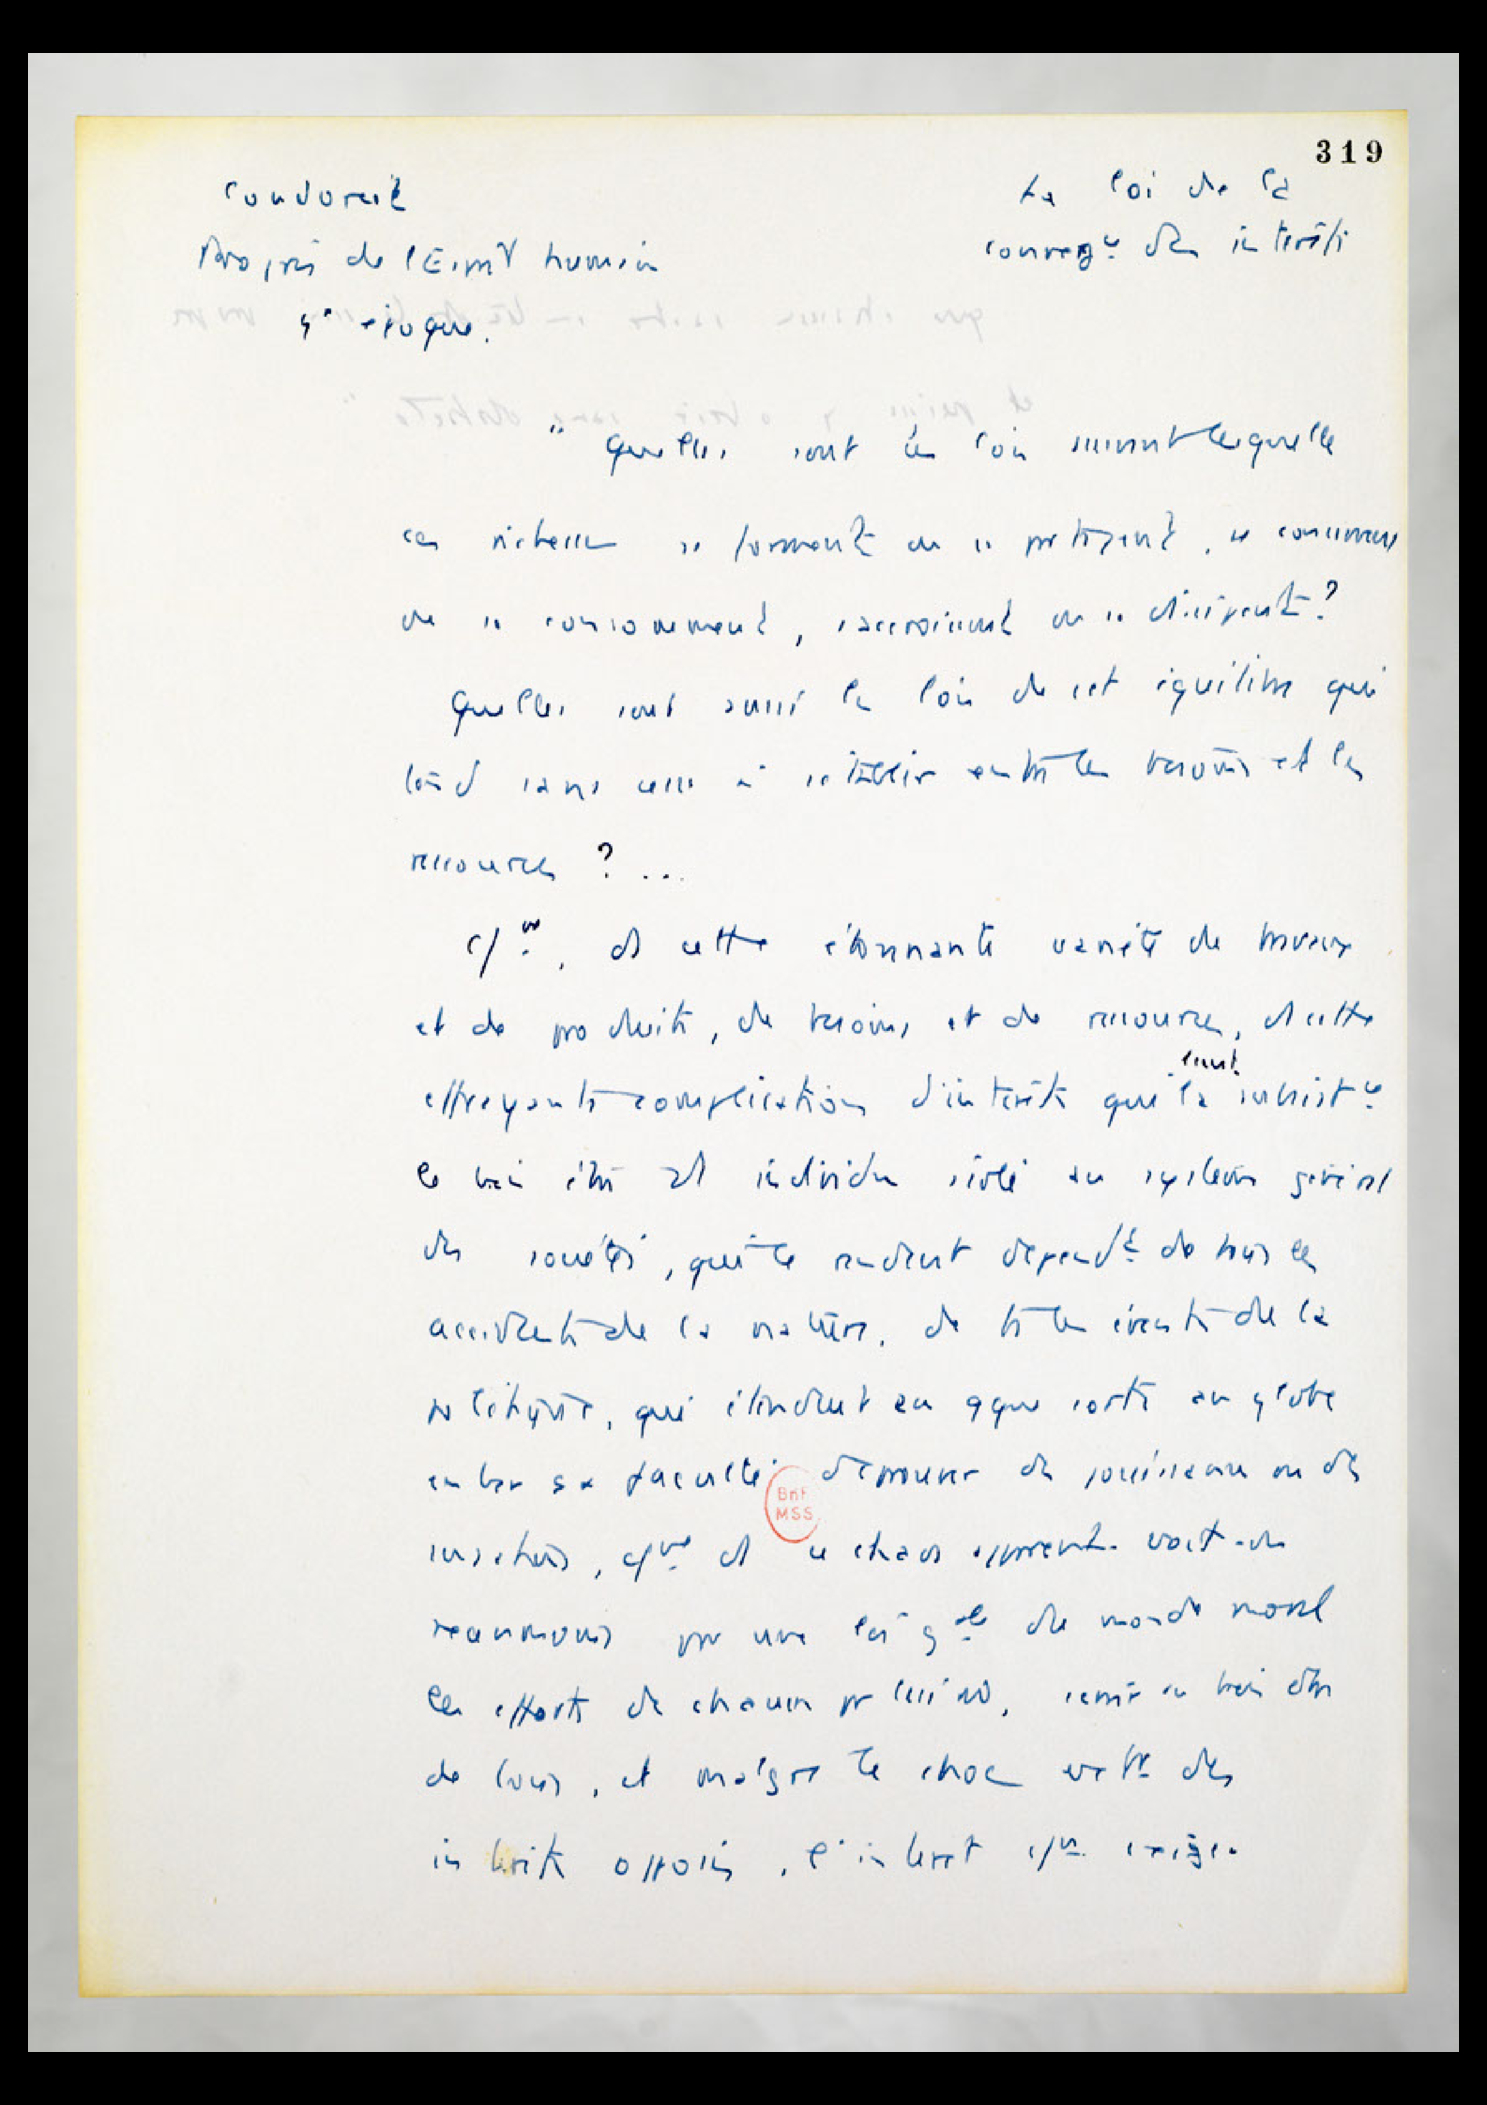 319
Condorcet
Progrès de l'Esprit humain
9e époque.
La loi de la
convergce des intérêts
"Quelles sont les lois suivant lesquelles
ces richesses se forment ou se partagent, se conservent
ou se consomment, s'accroissent ou se dissipent ?
Quelles sont aussi les lois de cet équilibre qui
tend sans cesse à s'établir entre les besoins et les
ressources ? ...
Ct, ds cette étonnante variété de travaux
et de produits, de besoins et de ressources, ds cette
effrayante complication d'intérêts qui la subsistce
lient
le bien être d'1 individu isolé au système général
des sociétés, qui le rendent dépendt de tous les
accidents de la nature, de ts les évents de la
politique, qui étendent en qque sorte au globe
entier sa faculté d'éprouver des jouissances ou des
, ct ds ce chaos apparent voit-on
néanmoins par une loi gale du monde moral
les efforts de chacun pr lui même, servir au bien être
de tous, et malgré le choc extr des
intérêts opposés, l'intérêt cn exige
BnF
MSS